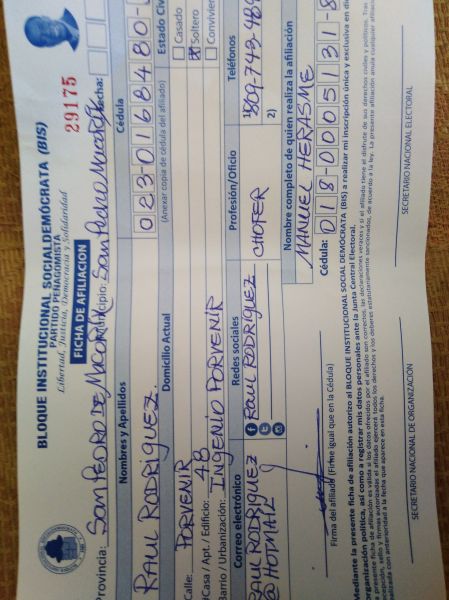 BLOQUE INSTITUCIONAL SOCIALDEMÓCRATA (BIS)
PARTIDO PEÑAGOMISTA
Libertad, Justicia, Democracia y Solidaridad
29175
FICHA DE AFILIACION
Provincia: SAN PEDRO DE MACORIX Municipio: SAN PEDRO MACORIX Fecha:
Nombres y Apellidos
Cédula
RAUL RODRIGUEZ
023-0168480-
(Anexar copia de cédula del afiliado)
Estado Civ
Casado
Soltero
Convivien
Domicilio Actual
Calle: PORVENIR
#Casa / Apt. / Edificio: 48
Barrio / Urbanización: INGENIO PORVENIR
Correo electrónico
Redes sociales
Profesión/Oficio
Teléfonos
RAUL RODRIGUEZ
@ HOTMAIL
RAUL RODRIGUEZ
CHOFER
1) 809-743-489
2)
Nombre completo de quien realiza la afiliación
MANUEL HERASME
Cédula: 018-0005131-8
Firma del afiliado (Firme igual que en la Cédula)
Mediante la presente ficha de afiliación autorizo al BLOQUE INSTITUCIONAL SOCIAL DEMÓCRATA (BIS) a realizar mi inscripción única y exclusiva en di
organización política, así como a registrar mis datos personales ante la Junta Central Electoral.
SECRETARIO NACIONAL DE ORGANIZACION
SECRETARIO NACIONAL ELECTORAL